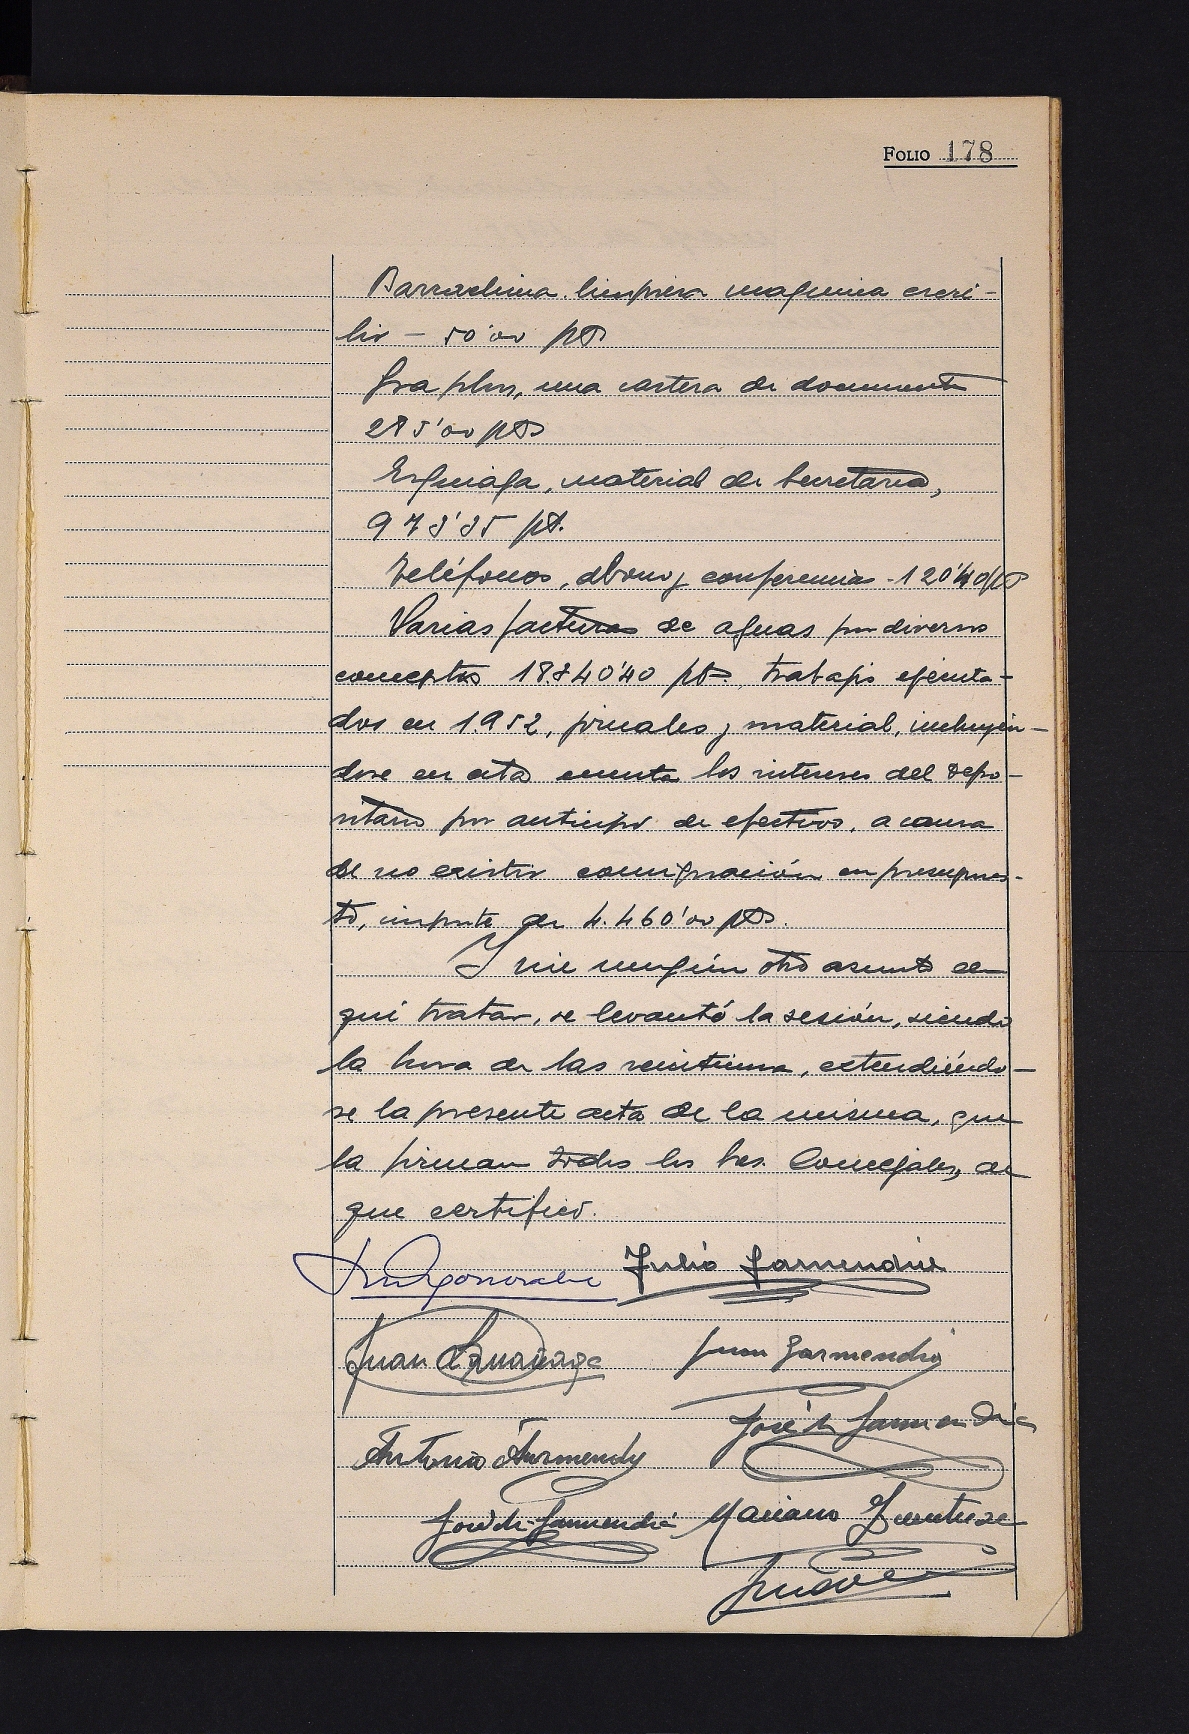 FOLIO 178
Barrachina limpieza maquina escri-
bir - 50'00 pts
Graphos, una cartera de documentos
285'00 pts
material de Secretaria,
pts.
Teléfonos, abono y conferencias - 120'40 pts
Varias facturas de aguas por diversos
conceptos 18.840'40 pts., trabajos ejecuta-
dos en 1.952, jornales y material, incluyén-
dose en esta cuenta los intereses del depo-
sitario por anticipo de efectivo, a causa
de no existir consignación en presupues-
to, importe de 4.460'00 pts.
Y sin ningún otro asunto de
qué tratar, se levantó la sesión, siendo
la hora de las veintiuna, extendiéndo-
se la presente acta de la misma, que
la firman todos los Srs. Concejales, de
que certifico.
Julio Garmendia
Juan
Juan Garmendia
José Garmendia
Antonio
José Garmendia
Mariano